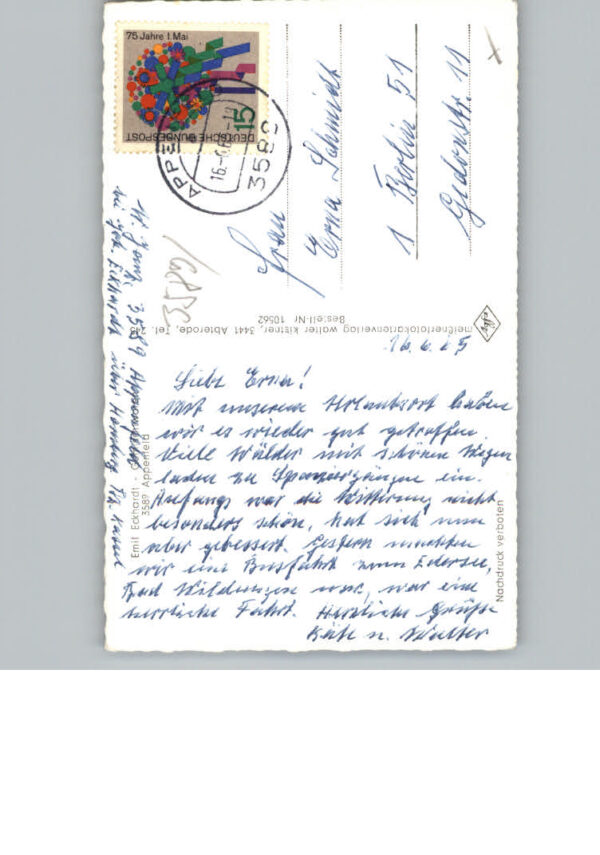 75 Jahre 1. Mai
15
DEUTSCHE BUNDESPOST
3589
Frau
Erna Schmidt
1 Berlin 51
Gudonstr. 11
3589
bei Gge. Eckhardt über Homberg Bz. Kassel
meißnerfotokartenverlag walter kittner, 3441 Abterode, Tel. 245
Bestell-Nr 10562
Emil Eckhardt -
3589 Appenfeld
Nachdruck verboten
16.6.65
Liebe Erna!
Mit unserem Urlaubsort haben
wir es wieder gut getroffen
Viele Wälder mit schönen Wegen
laden zu Spaziergängen ein.
Anfangs war die Witterung nicht
besonders schön, hat sich nun
aber gebessert. Gestern machten
wir eine Busfahrt zum Edersee,
Bad Wildungen usw., war eine
herrliche Fahrt. Herzliche Grüße
Käte u. Walter